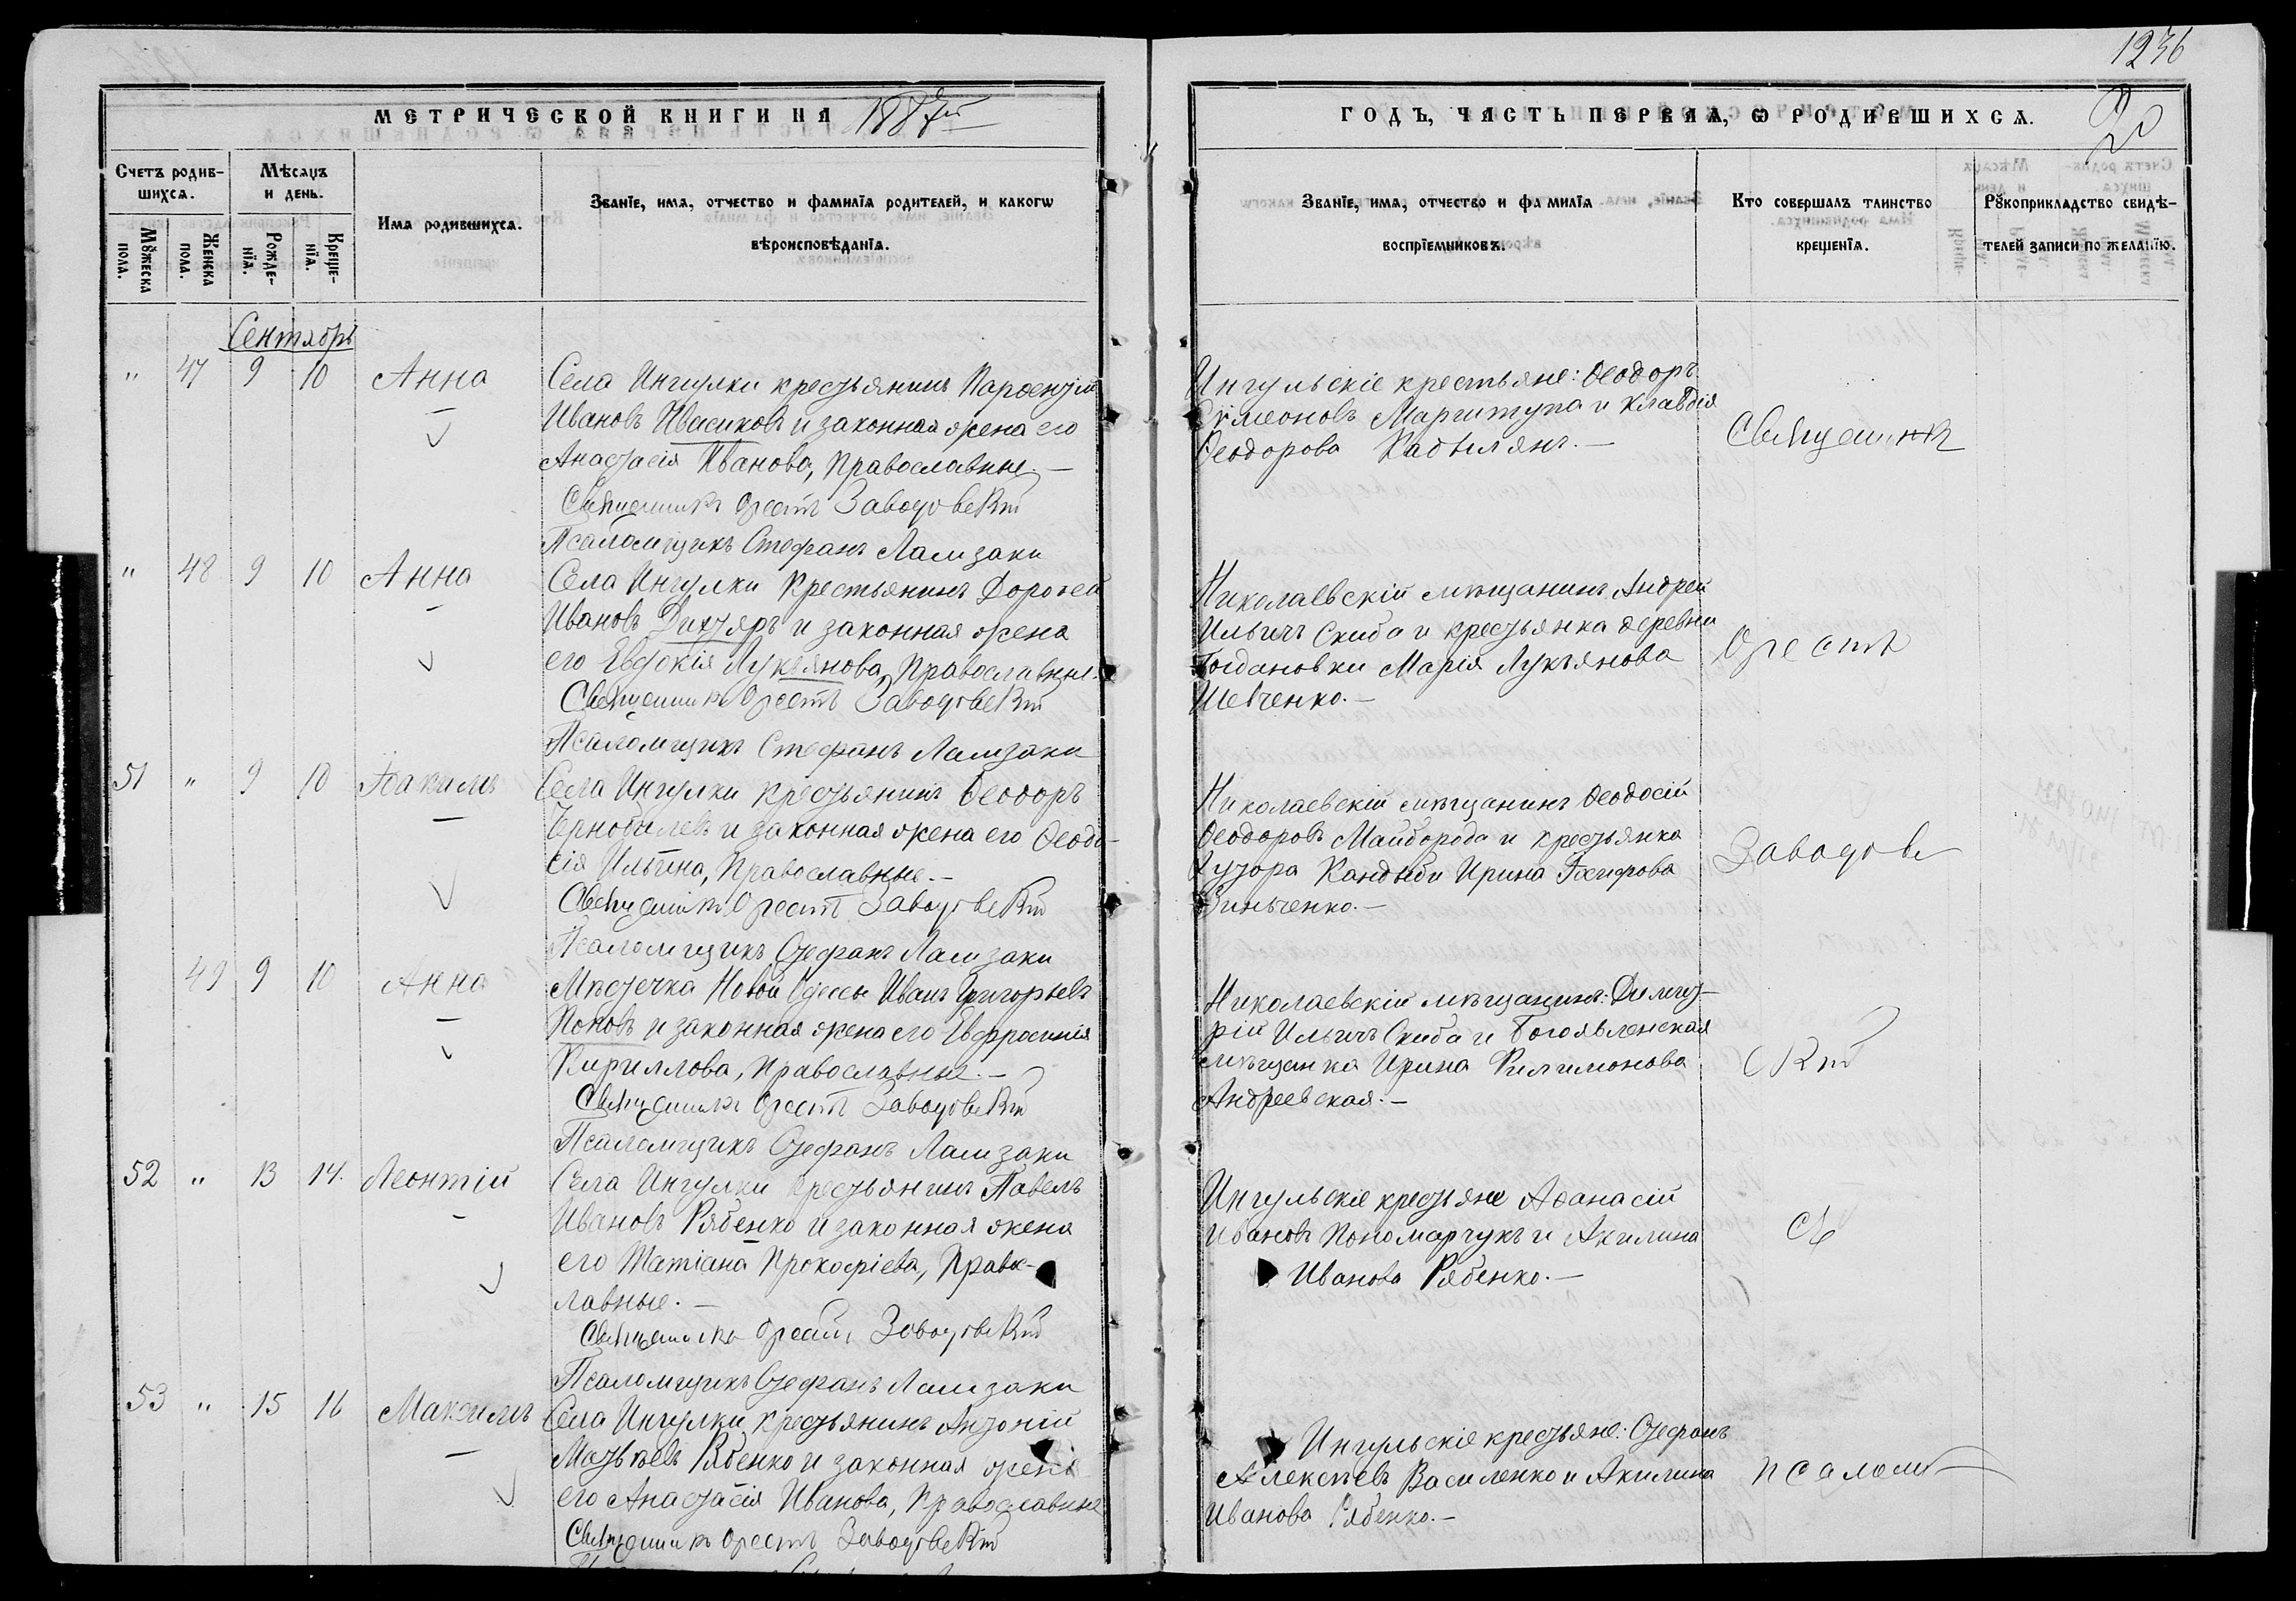 1236
МЕТРИЧЕСКОЙ КНИГИ НА 1887й
ГОДЪ, ЧАСТЬ ПЕРВАЯ, Ѡ РОДИВШИХСѦ.
Счетъ родив-
шихсѧ.
Мѣсѧцъ
и день.
Мꙋжеска
пола.
Женска
пола.
Рожде-
нїѧ.
Креще-
нїѧ.
Имѧ родившихсѧ.
Званїе, имѧ, отчество и фамилїѧ родителей, и какогѡ
вѣроисповѣданїѧ.
Званїе, имѧ, отчество и фамилїѧ
воспрїемниковъ.
Кто совершалъ таинство
крещенїѧ.
Рꙋкоприкладство свидѣ-
телей записи по желанїю.
Сентябрь
" 47 9 10 Анна
Села Ингулки крестьянинъ Парѳентій
Ивановъ Ивасиковъ и законная жена его
Анастасія Иванова, православные.—
Священникъ Орестъ Заводовскій
Псаломщикъ Стефанъ Ламзаки
Ингульскіе крестьяне: Ѳеодоръ
Сѵмеоновъ Маргитура и Клавдія
Ѳеодорова Кадылянъ.—
Священникъ
" 48 9 10 Анна
Села Ингулки крестьянинъ Дороѳей
Ивановъ Дихтяръ и законная жена
его Евдокія Лукьянова, православные.
Священникъ Орестъ Заводовскій
Псаломщикъ Стефанъ Ламзаки
Николаевскій мѣщанинъ Андрей
Ильичъ Скиба и крестьянка деревни
Богдановки Марія Лукьянова
Шевченко.—
Орестъ
51 " 9 10 Іоакимъ
Села Ингулки крестьянинъ Ѳеодоръ
Чернобылевъ и законная жена его Ѳеодо-
сія Ильина, православные.—
Священникъ Орестъ Заводовскій
Псаломщикъ Стефанъ Ламзаки
Николаевскій мѣщанинъ Ѳеодосій
Ѳеодоровъ Майборода и крестьянка
хутора Кандыби Ирина
Зинченко.—
Заводов
49 9 10 Анна
Мѣстечка Новой Одессы Иванъ Григорьевъ
Поповъ и законная жена его Евфросинія
Кириллова, православные.—
Священникъ Орестъ Заводовскій
Псаломщикъ Стефанъ Ламзаки
Николаевскій мѣщанинъ: Димит-
рій Ильичъ Скиба и Богоявленская
мѣщанка Ирина Филимонова
Андреевская.—
скій
52 " 13 14. Леонтій
Села Ингулки крестьянинъ Павелъ
Ивановъ Рябенко и законная жена
его Татіана Прокофіева, правос-
лавные.—
Священникъ Орестъ Заводовскій
Псаломщикъ Стефанъ Ламзаки
Ингульскіе крестьяне Аѳанасій
Ивановъ Пономарчукъ и Акилина
Иванова Рябенко.—
съ
53 " 15 16 Максимъ
Села Ингулки крестьянинъ Антоній
Матвѣевъ Рябенко и законная жена
его Анастасія Иванова, православные
Священникъ Орестъ Заводовскій
Ингульскіе крестьяне: Стефанъ
Алексѣевъ Василенко и Акилина
Иванова Рябенко.—
псалом